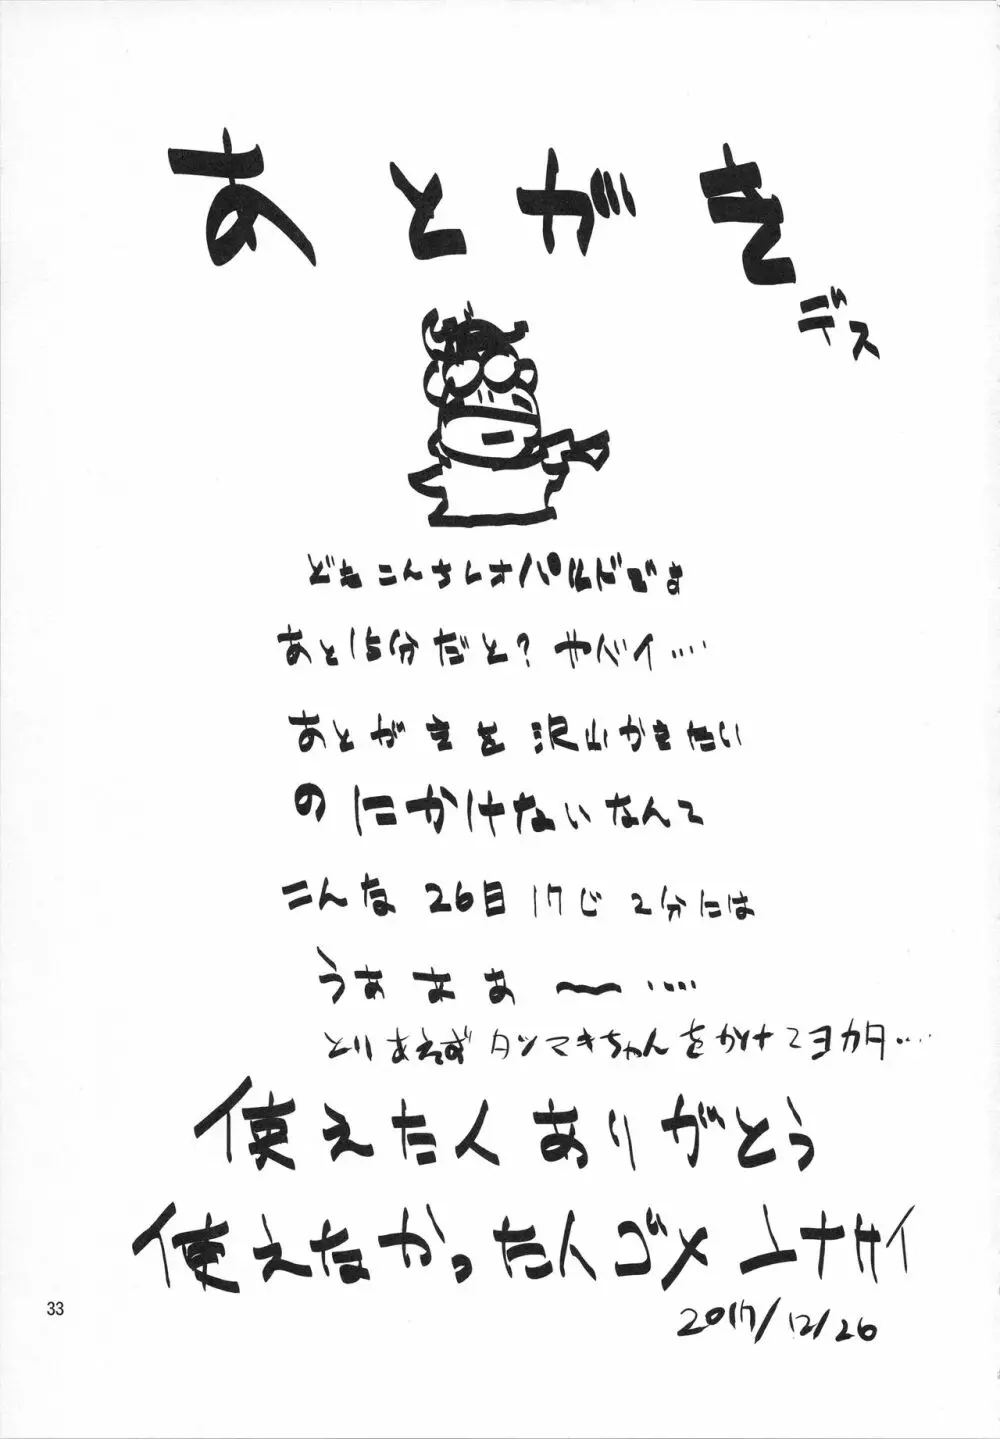 あとがき
デス
どもこんちレオパルドです
あと15分だと?ヤバイ....
あとがきを沢山かきたい
のにかけないなんて
こんな26日17じ2分には
うああぁ〜....
とりあえずタツマキちゃんをかけてヨカタ....
使えた人ありがとう
使えなかった人ゴメンナサイ
2017/12/26
33